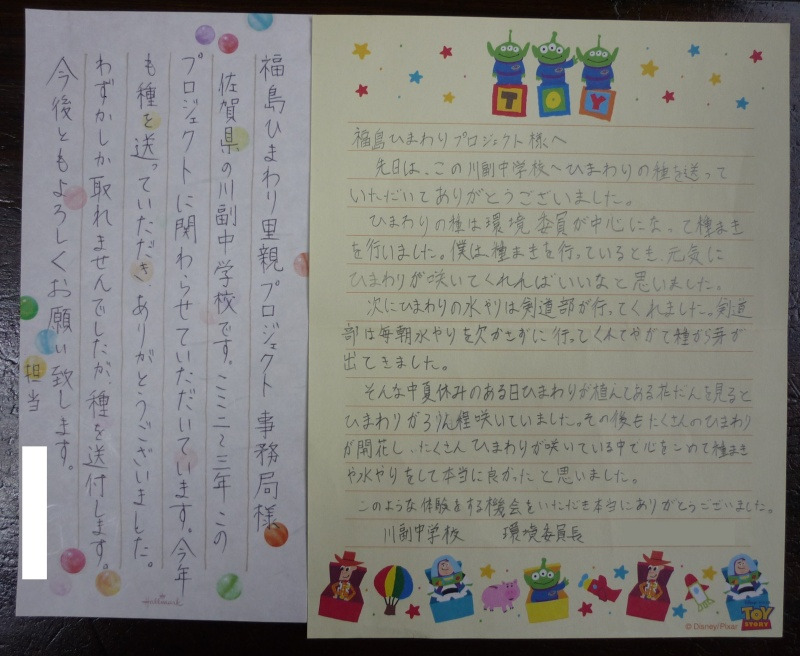 福島ひまわり里親プロジェクト事務局様
佐賀県の川副中学校です。ここ二～三年この
プロジェクトに関わらせていただいています。今年
も種を送っていただきありがとうございました。
わずかしか取れませんでしたが、種を送付します。
今後ともよろしくお願い致します。
担当
Hallmark
TOY
福島ひまわりプロジェクト様へ
先日は、この川副中学校へひまわりの種を送って
いただいてありがとうございました。
ひまわりの種は環境委員が中心になって種まき
を行いました。僕は種まきを行っているとき、元気に
ひまわりが咲いてくれればいいなと思いました。
次にひまわりの水やりは剣道部が行ってくれました。剣道
部は毎朝水やりを欠かさずに行ってくれてやがて種から芽が
出てきました。
そんな中夏休みのある日ひまわりが植えてある花だんを見ると
ひまわりが3りん程咲いていました。その後もたくさんのひまわり
が開花し、たくさんひまわりが咲いている中で心をこめて種まき
や水やりをして本当に良かったと思いました。
このような体験をする機会をいただき本当にありがとうございました。
川副中学校 環境委員長
TOY STORY
© Disney/Pixar